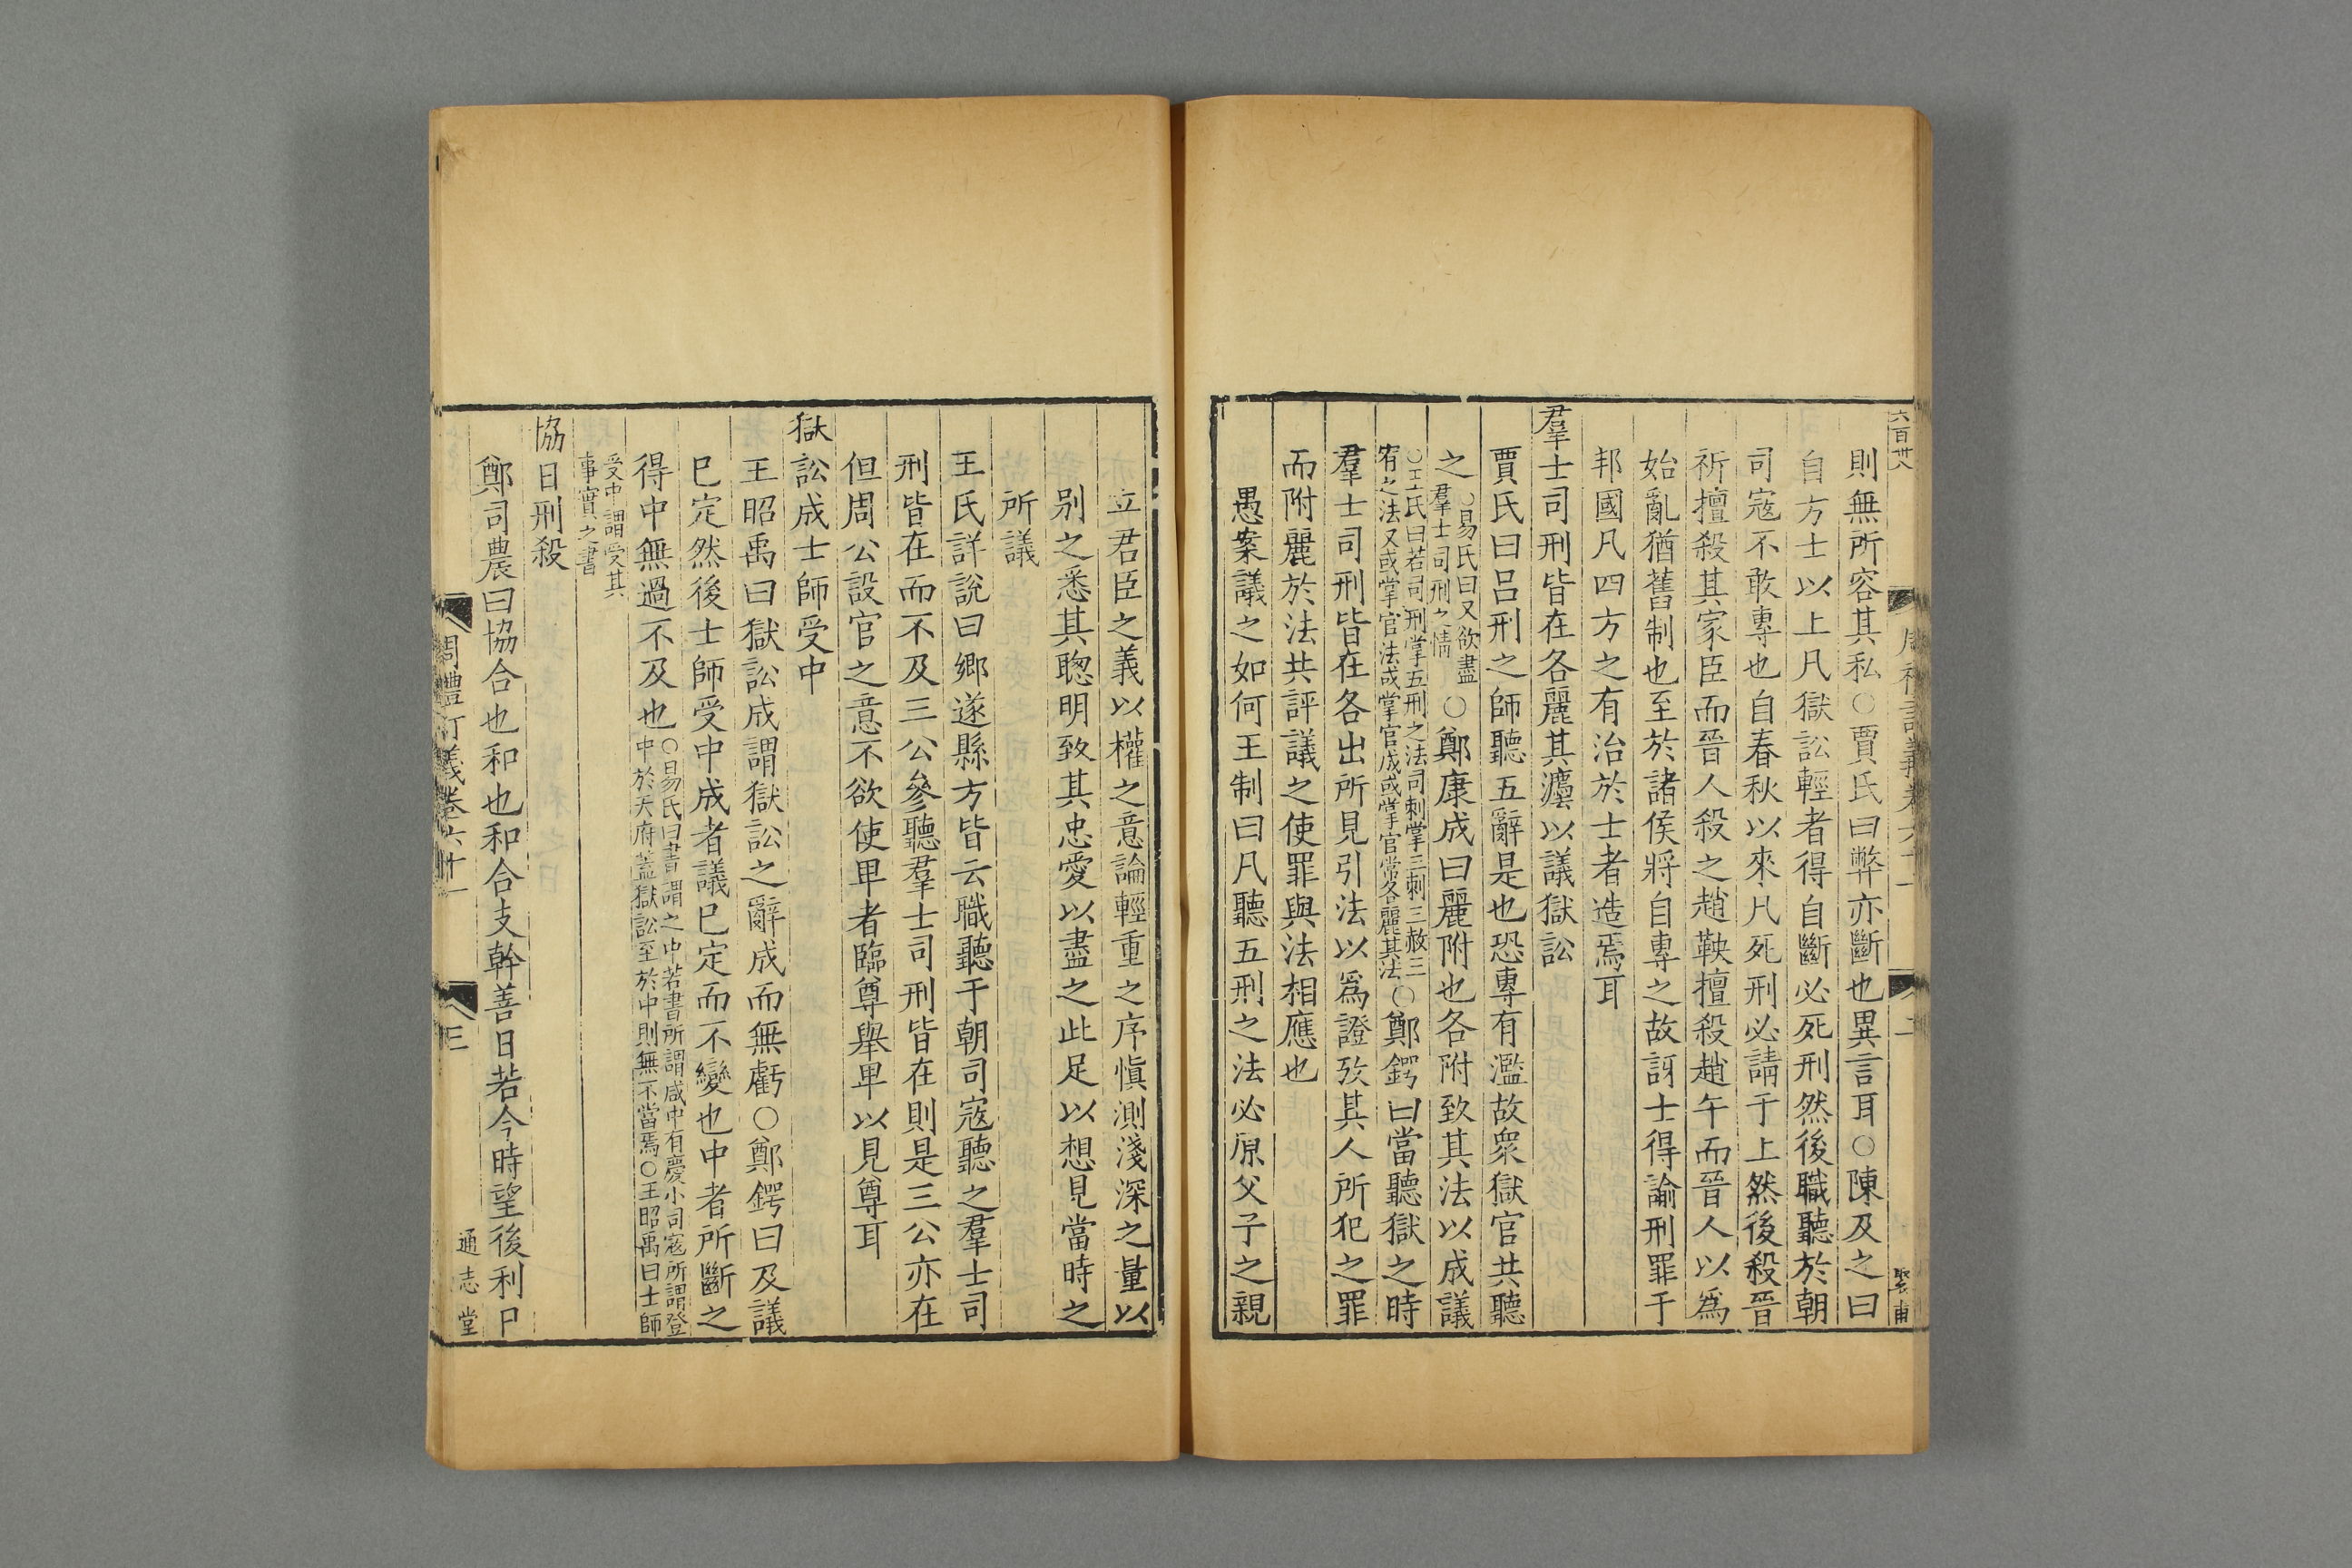 六百卅八
則無所容其私○賈氏曰弊亦斷也異言耳○陳及之曰
自方士以上凡獄訟輕者得自斷必死刑然後職聽於朝
司寇不敢專也自春秋以來凡死刑必請于上然後殺晉
祈擅殺其家臣而晉人殺之趙鞅擅殺趙午而晉人以爲
始亂猶舊制也至於諸侯將自專之故訝士得論刑罪于
邦國凡四方之有治於士者造焉耳
羣士司刑皆在各麗其灋以議獄訟
賈氏曰呂刑之師聽五辭是也恐專有濫故衆獄官共聽
之○易氏曰又欲盡羣士司刑之情○鄭康成曰麗附也各附致其法以成議
○王氏曰若司刑掌五刑之法司刺掌三刺三赦三宥之法又或掌官法或掌官成或掌官常各麗其法○鄭鍔曰當聽獄之時
羣士司刑皆在各出所見引法以爲證攷其人所犯之罪
而附麗於法共評議之使罪與法相應也
愚案議之如何王制曰凡聽五刑之法必原父子之親
立君臣之義以權之意論輕重之序愼測淺深之量以
别之悉其聰明致其忠愛以盡之此足以想見當時之
所議
王氏詳說曰鄉遂縣方皆云職聽于朝司寇聽之羣士司
刑皆在而不及三公參聽羣士司刑皆在則是三公亦在
但周公設官之意不欲使卑者臨尊舉卑以見尊耳
獄訟成士師受中
王昭禹曰獄訟成謂獄訟之辭成而無虧○鄭鍔曰及議
已定然後士師受中成者議已定而不變也中者所斷之
得中無過不及也○易氏曰書謂之中若書所謂咸中有慶小司寇所謂登中於天府蓋獄訟至於中則無不當焉○王昭禹曰士師
受中謂受其事實之書
協日刑殺
鄭司農曰協合也和也和合支幹善日若今時望後利日
周禮訂義卷六十一
三
通志堂